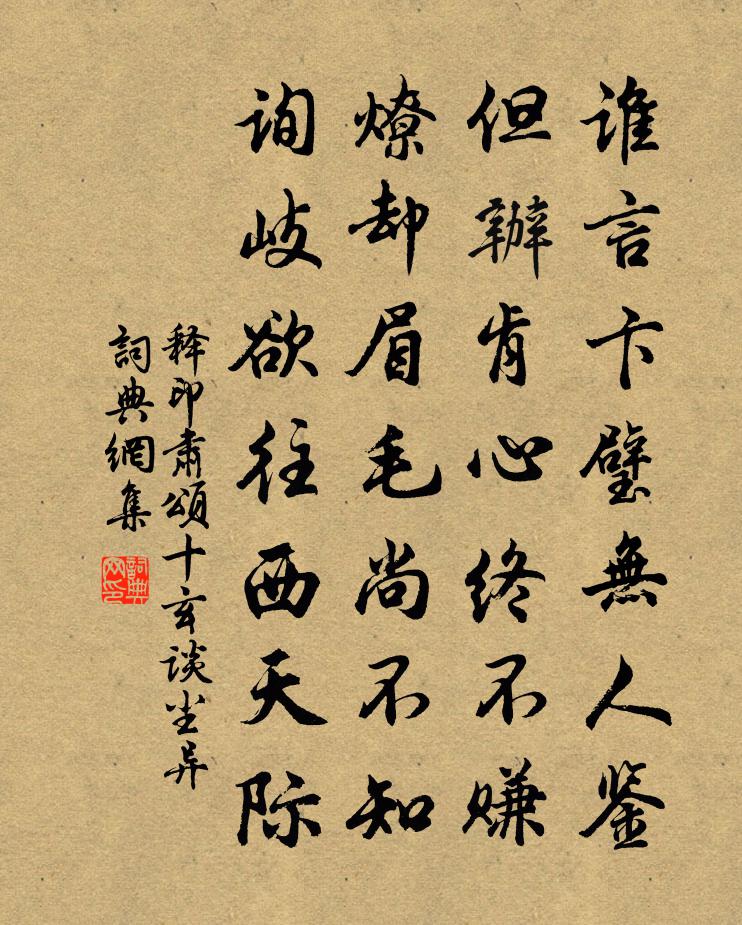 谁言卞璧無人鉴
但辦肯心终不赚
燎却眉毛尚不知
询岐欲往西天际
释印肅頌十玄谈尘异
詞典網集
詞典网印